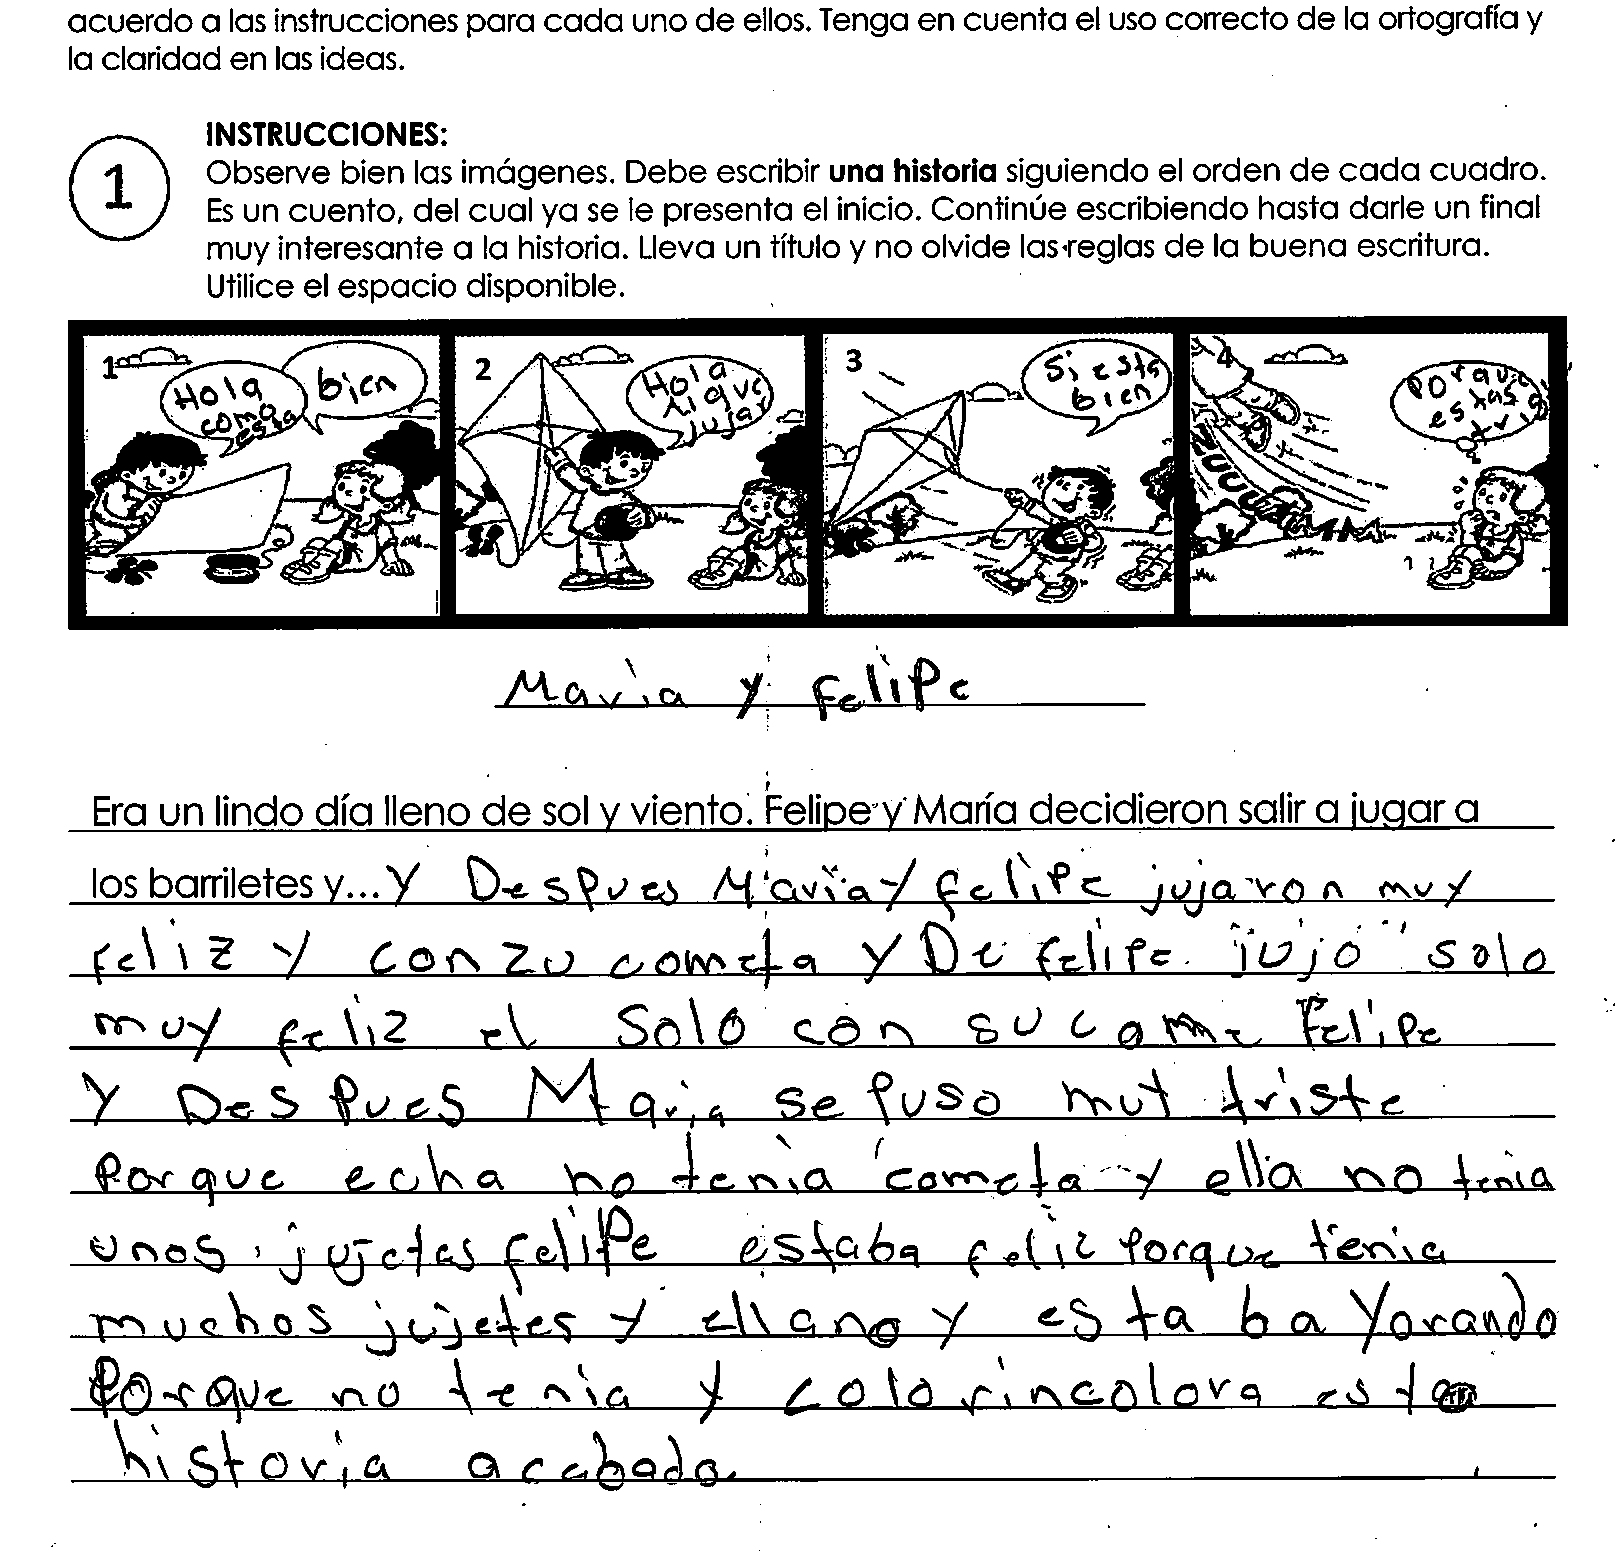 acuerdo a las instrucciones para cada uno de ellos. Tenga en cuenta el uso correcto de la ortografía y
la claridad en las ideas.
1
INSTRUCCIONES:
Observe bien las imágenes. Debe escribir una historia siguiendo el orden de cada cuadro.
Es un cuento, del cual ya se le presenta el inicio. Continúe escribiendo hasta darle un final
muy interesante a la historia. Lleva un título y no olvide las reglas de la buena escritura.
Utilice el espacio disponible.
1
Hola
como
esta
bien
2
Hola
jujar
3
Si esta
bien
4
Porque
estas
ZUUUUMMM
Maria y Felipe
Era un lindo día lleno de sol y viento. Felipe y María decidieron salir a jugar a
los barriletes y... y Despues Maria y felipe jujaron muy
feliz y con zu cometa y De felipe jujo solo
muy feliz el solo con su come Felipe
y Des Pues Maria se puso muy triste
Porque echa no tenia cometa y ella no tenia
unos jujetes felipe estaba feliz porque tenia
muchos jujetes y ella no y esta ba Yorando
Porque no tenia y colorincolora esta
historia acabada